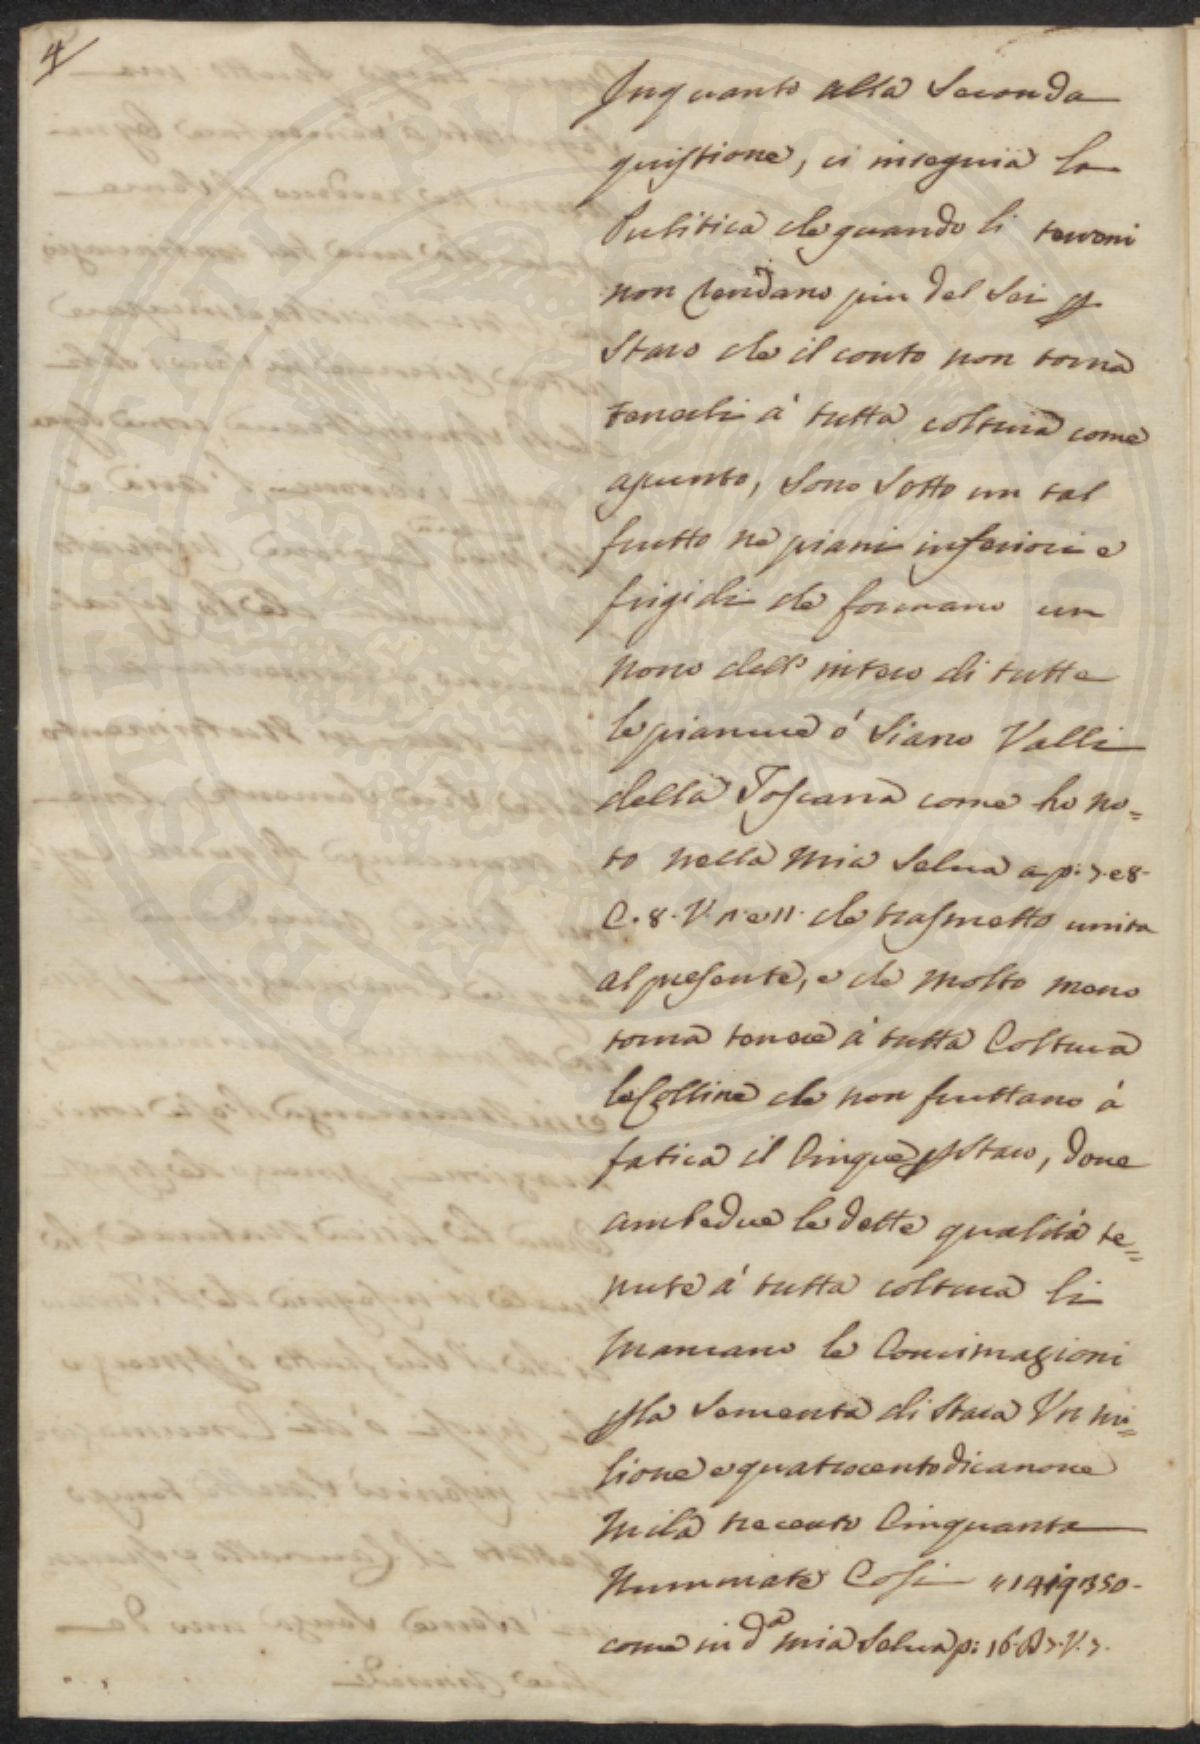 4
Inquanto alla Seconda
quistione, ci inseguia la
Pulitica che quando li terreni
non rendano piu del Sei p
Staro che il conto non torna
tenerli à tutta coltura come
apunto, Sono Sotto un tal
frutto ne piani inferiori e
frigidi che formano un
nono dell' intero di tutte
le pianure ò Siano Valli
della Toscana come ho no=
to nella mia Selua a p: 7. e 8.
C. 8. V. n. e 11. che trasmetto unita
al presente, e che molto meno
torna tenere à tutta Coltura
le Colline che non fruttano à
fatica il Cinque p Staro, doue
ambedue le dette qualità te=
nute à tutta coltura li
mancano le Concimazioni
p la Sementa di Stara Vn mi=
lione e quatrocentodicianoue
mila trecento Cinquanta
nummate Cosi " 1419350.
come in d.a mia Selua p: 16. C 7. V. 7.